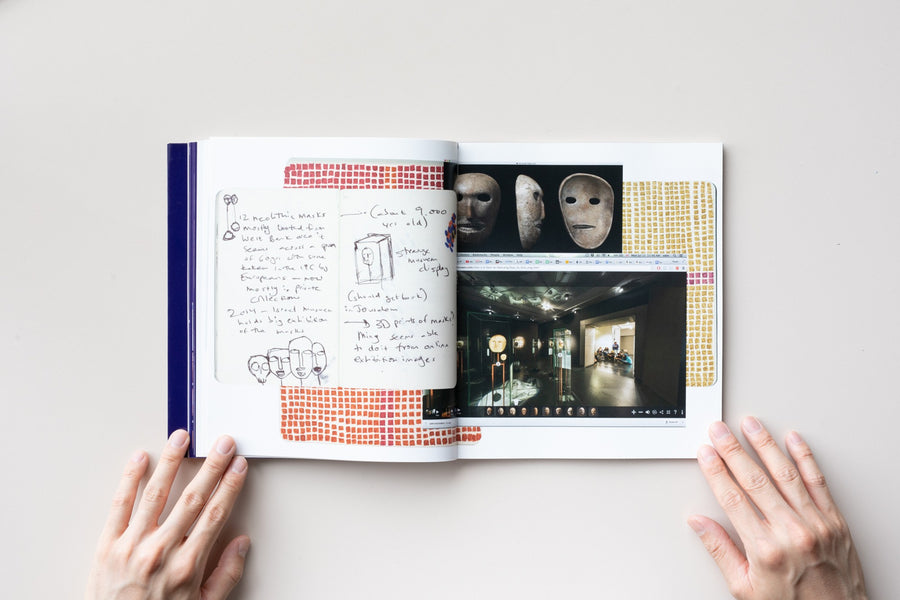 12 Neolithic masks
mostly looted from
West Bank area it
seems across a span
of 60 yrs, with some
taken in the 19C by
Europeans – now
mostly in private
collections
2014 – Israel Museum
holds big exhibition
of the masks
(about 9,000
yrs old)
strange
museum
display
(should get back)
in Jerusalem
3D prints of masks?
Thing seems able
to do it from online
exhibition images